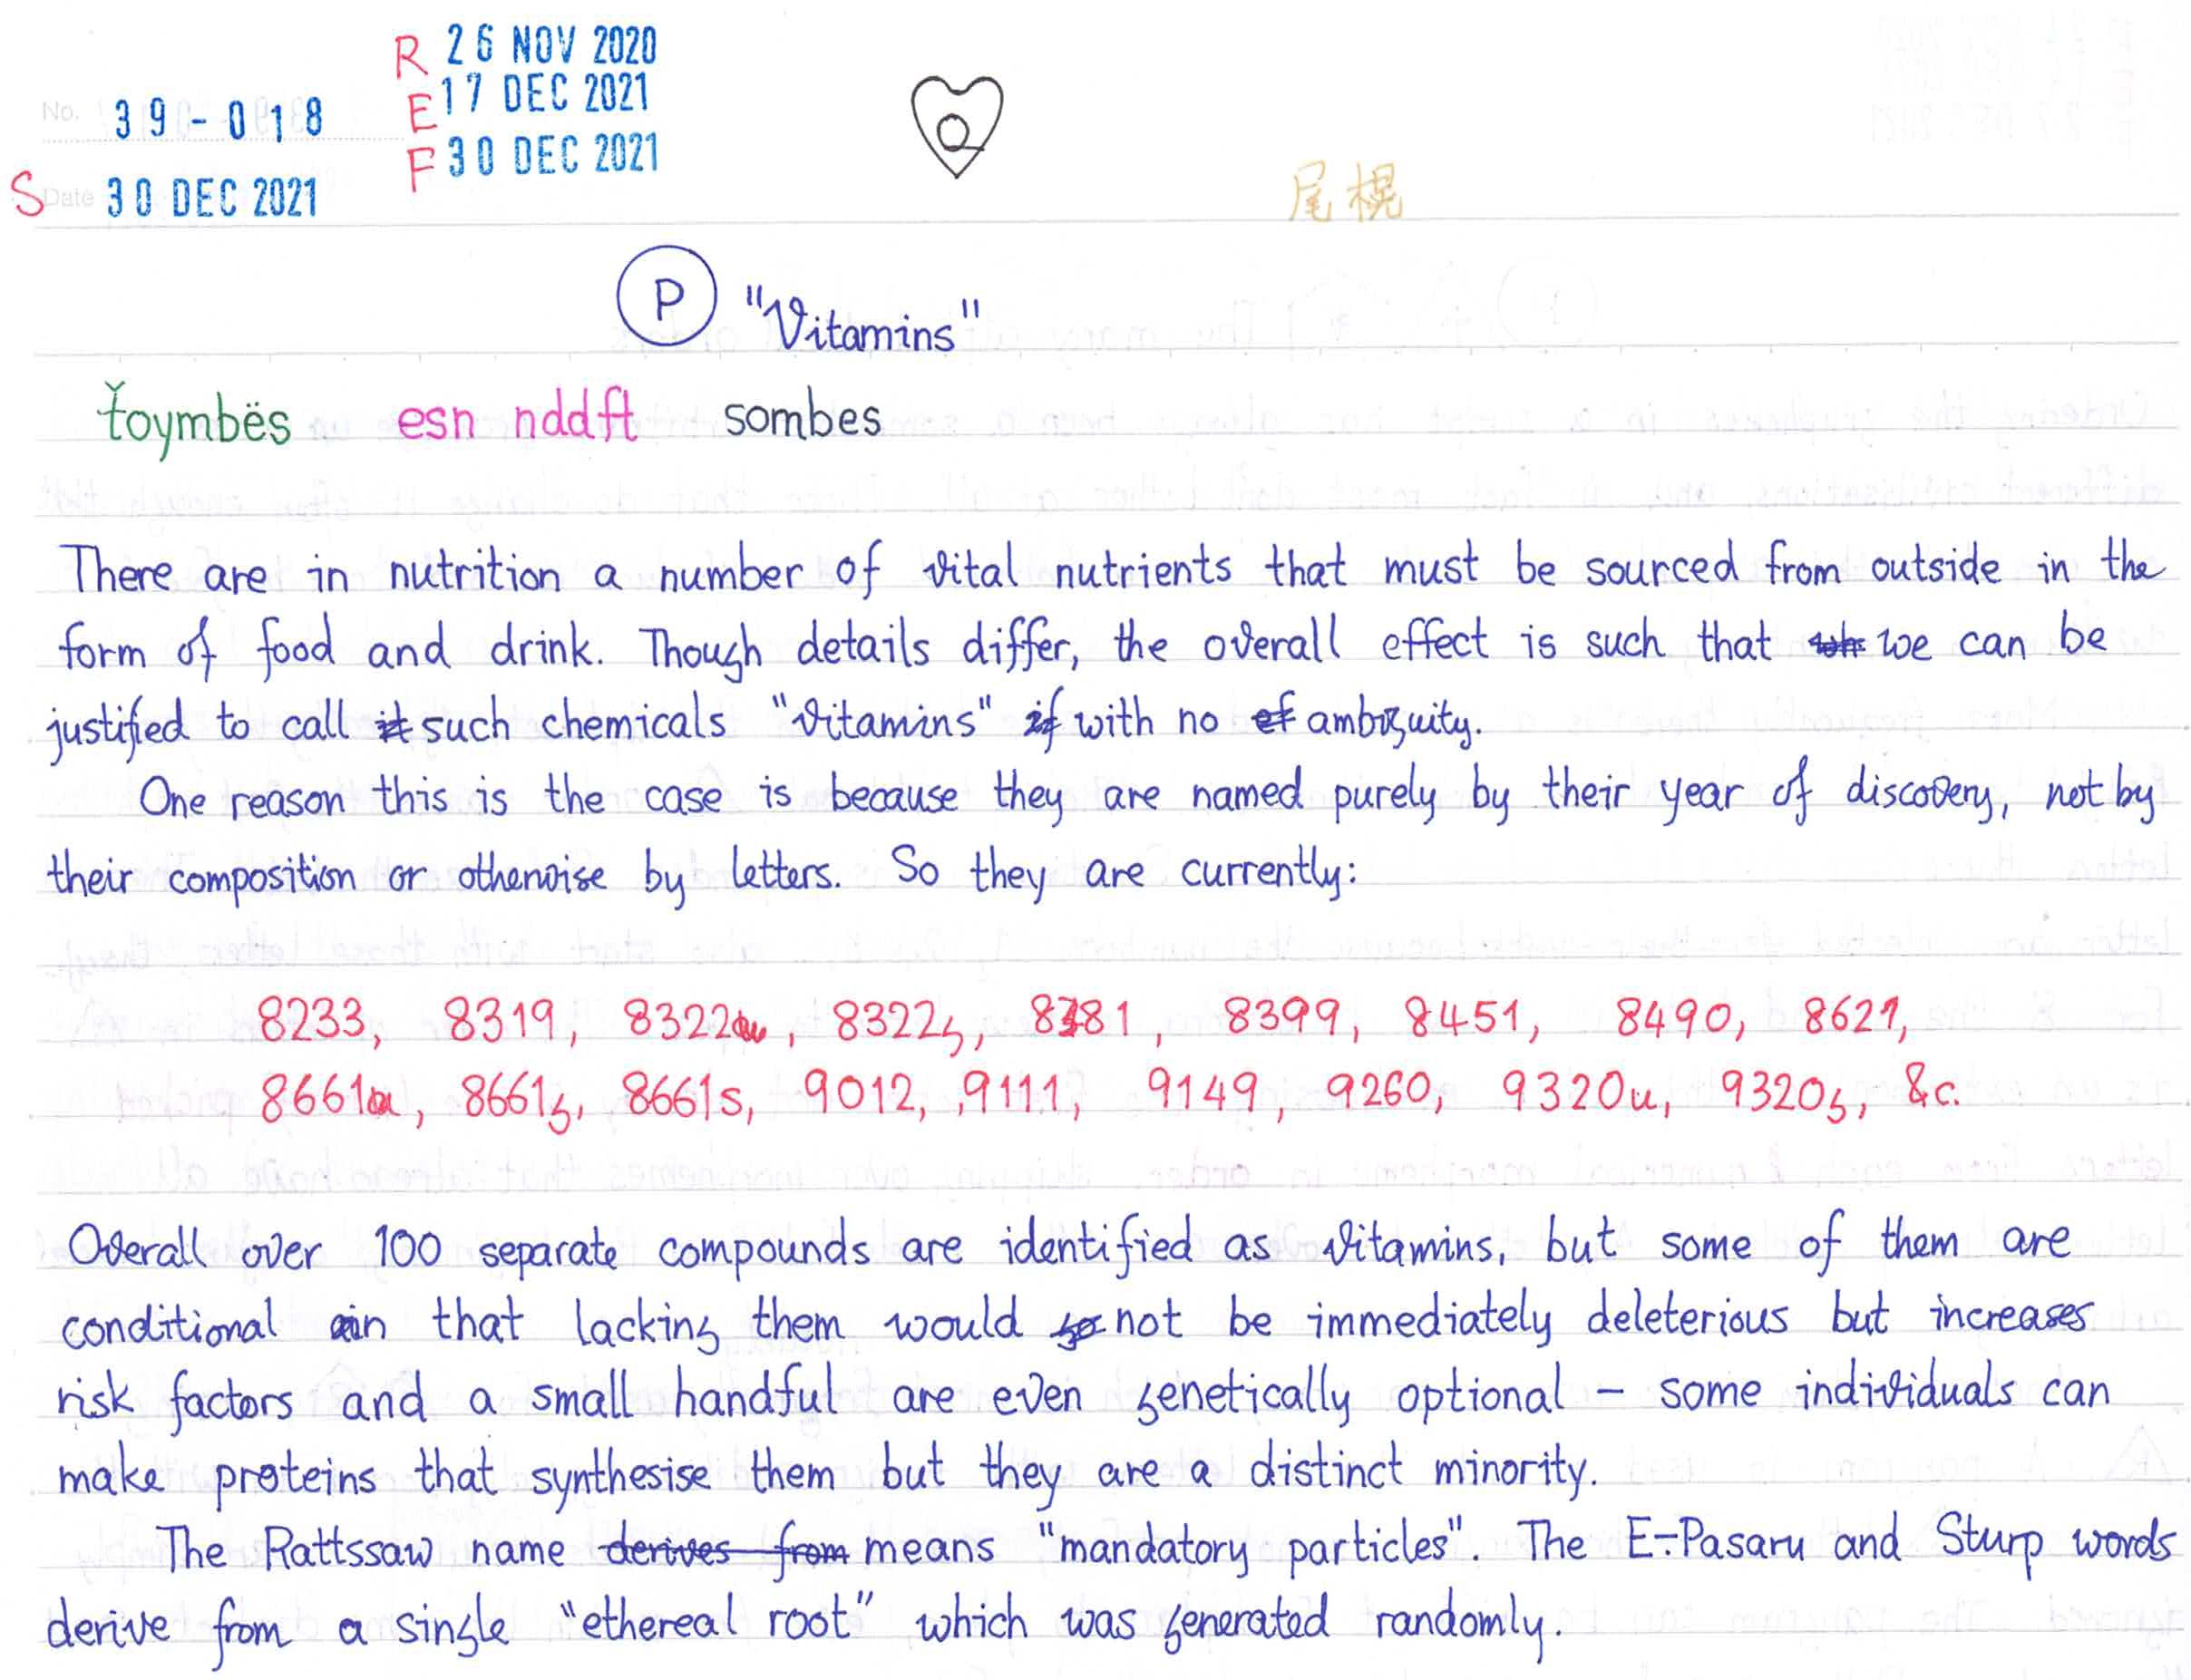 R 26 NOV 2020
No. 39-018 E 17 DEC 2021
F 30 DEC 2021
S Date 30 DEC 2021
Q
尾幌
P "Vitamins"
ťoymbës esn nddft sombes
There are in nutrition a number of vital nutrients that must be sourced from outside in the
form of food and drink. Though details differ, the overall effect is such that we can be
justified to call it such chemicals "vitamins" if with no of ambiguity.
One reason this is the case is because they are named purely by their year of discovery, not by
their composition or otherwise by letters. So they are currently:
8233, 8319, 8322u, 8322g, 8381, 8399, 8451, 8490, 8621,
8661u, 8661g, 8661s, 9012, 9111, 9149, 9260, 9320u, 9320g, &c.
Overall over 100 separate compounds are identified as vitamins, but some of them are
conditional in that lacking them would not be immediately deleterious but increases
risk factors and a small handful are even genetically optional – some individuals can
make proteins that synthesise them but they are a distinct minority.
The Rattssaw name derives from means "mandatory particles". The E-Pasaru and Sturp words
derive from a single "ethereal root" which was generated randomly.